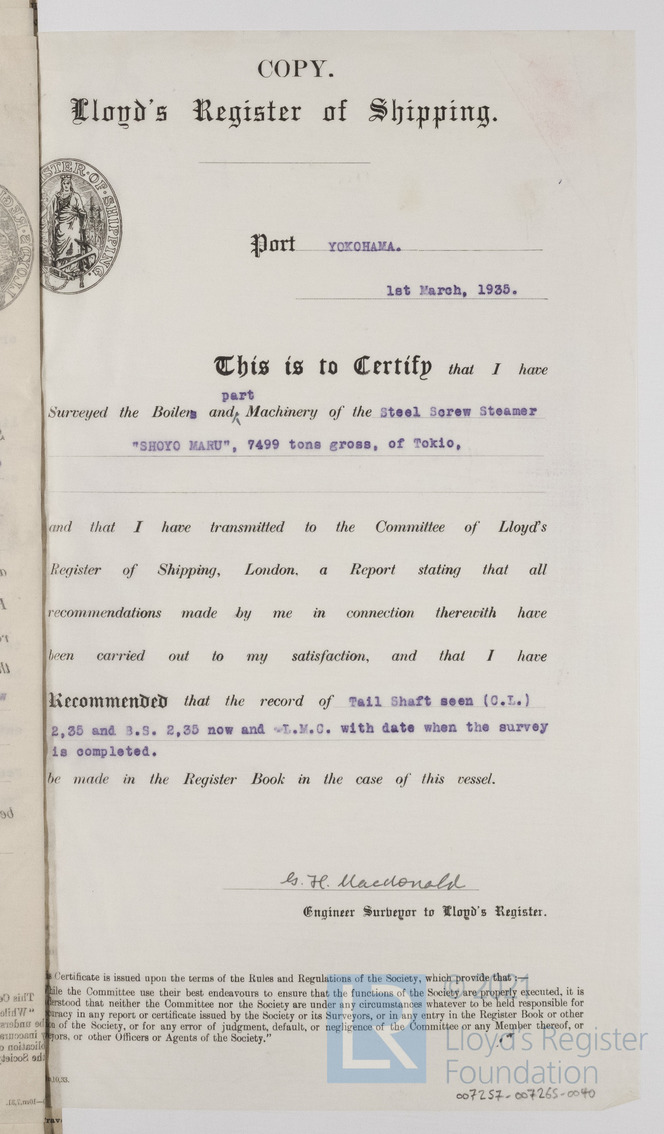 COPY.
Lloyd's Register of Shipping.
Port YOKOHAMA.
1st March, 1935.
This is to Certify that I have
part
Surveyed the Boilers and Machinery of the Steel Screw Steamer
"SHOYO MARU", 7499 tons gross, of Tokio,
and that I have transmitted to the Committee of Lloyd's
Register of Shipping, London, a Report stating that all
recommendations made by me in connection therewith have
been carried out to my satisfaction, and that I have
Recommended that the record of Tail Shaft seen (C.L.)
2,35 and B.S. 2,35 now and L.M.C. with date when the survey
is completed.
be made in the Register Book in the case of this vessel.
G. H. Macdonald
Engineer Surveyor to Lloyd's Register.
Certificate is issued upon the terms of the Rules and Regulations of the Society, which provide that:—
the Committee use their best endeavours to ensure that the functions of the Society are properly executed, it is
that neither the Committee nor the Society are under any circumstances whatever to be held responsible for
in any report or certificate issued by the Society or its Surveyors, or in any entry in the Register Book or other
of the Society, or for any error of judgment, default, or negligence of the Committee or any Member thereof, or
or other Officers or Agents of the Society."
© 2021
LR
Lloyd's Register
Foundation
007257-007265-0040